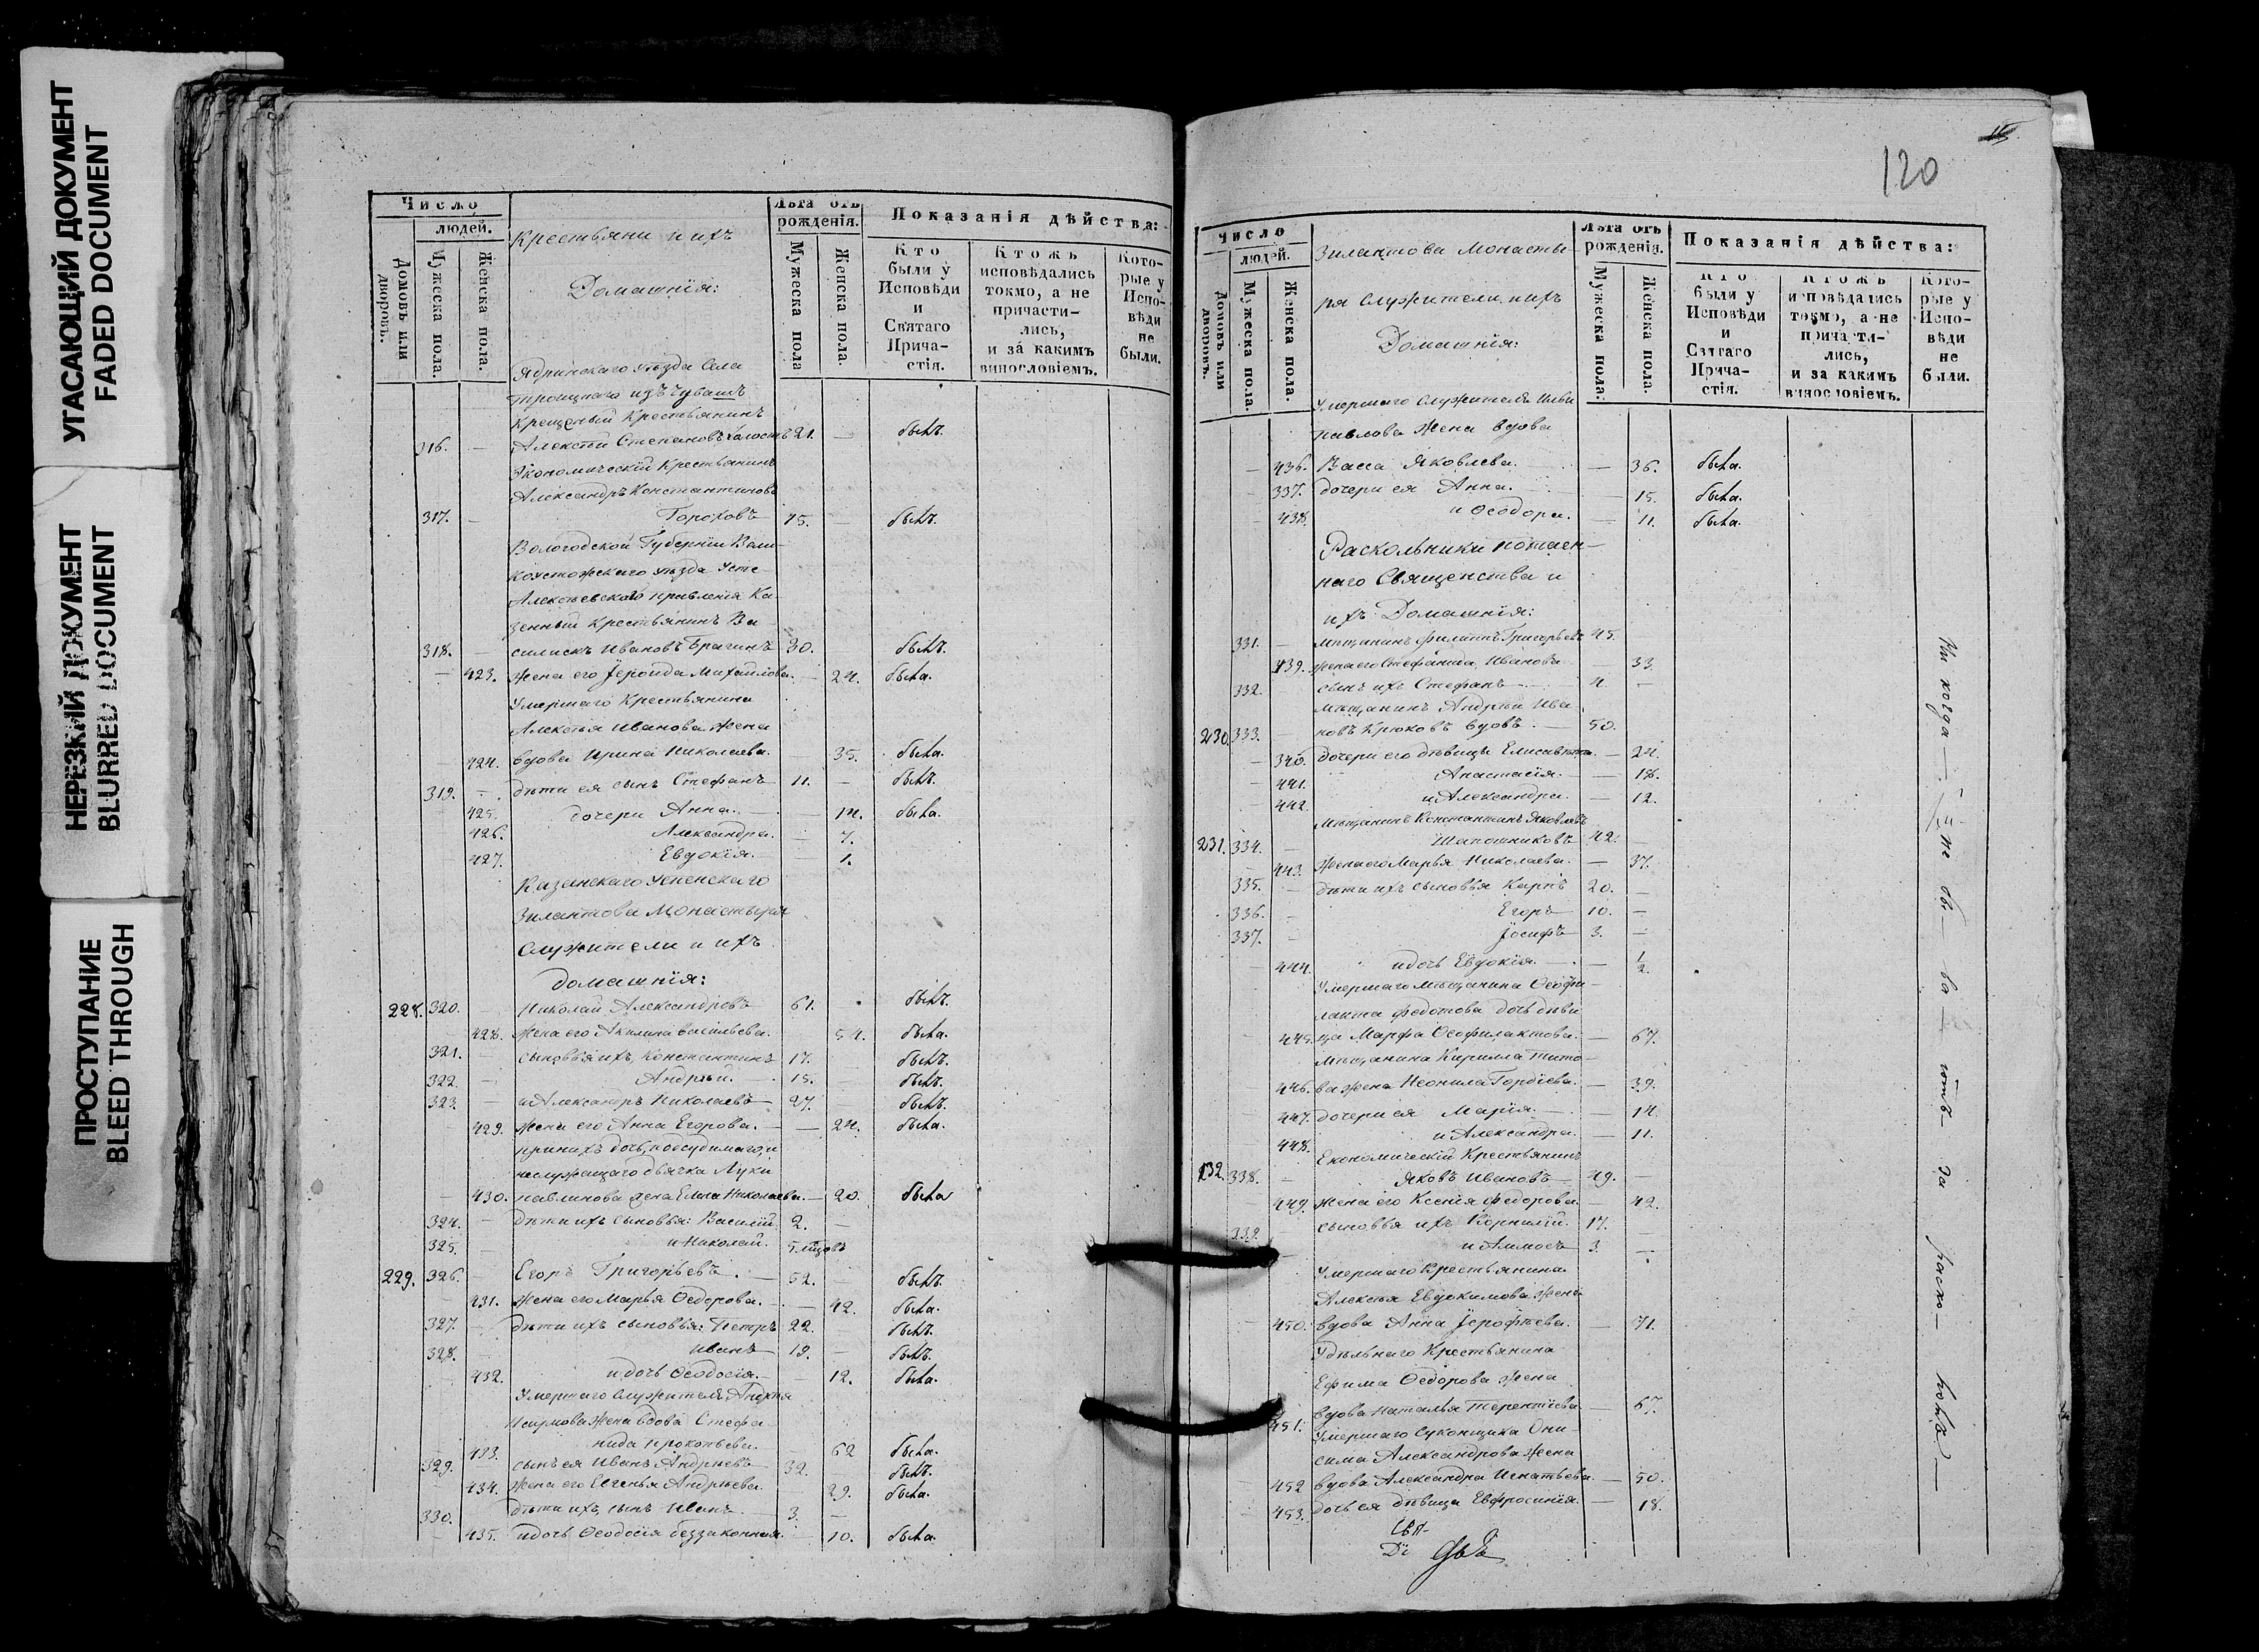 УГАСАЮЩИЙ ДОКУМЕНТ
FADED DOCUMENT
НЕРЕЗКИЙ ДОКУМЕНТ
BLURRED DOCUMENT
ПРОСТУПАНИЕ
BLEED THROUGH
Число
людей.
Домовъ или дворовъ.
Мужеска пола.
Женска пола.
Крестьяни и ихъ
Домашнія:
Лѣта отъ рожденія.
Мужеска пола
Женска пола.
Показанія дѣйства:
Кто были у Исповѣди и Святаго Причастія.
Ктожъ исповѣдались токмо, а не причастились, и за какимъ винословіемъ.
Которые у Исповѣди не были.
Ядринскаго уѣзда села
Троицкаго изъ Чувашъ
Крещеный Крестьянинъ
316. — Алексѣй Степановъ холостъ 21. — былъ.
Экономическій Крестьянинъ
Александръ Константиновъ
317. — Гороховъ 75. былъ.
Вологодской Губерніи Вели-
коустюжскаго уѣзда Усть
Алексѣевскаго правленія Ка-
зенный Крестьянинъ Ва-
318. — силискъ Ивановъ Брагинъ 30. былъ.
— 423. жена его Іероида Михайлова. — 24. была.
Умершаго Крестьянина
Алексѣя Иванова жена
424. вдова Ирина Николаева. 35. была.
319. — дѣти ея сынъ Стефанъ 11. — былъ.
425. дочери Анна. — 14. была.
426. Александра. 7.
427. Евдокія. 1.
Казанскаго Успенскаго
Зилантова Монастыря
служители и ихъ
домашнія:
228. 320. Николай Александровъ 61. былъ.
428. жена его Акилина Васильева. 54. была.
321. — сыновья ихъ, Константинъ 17. былъ.
322. — Андрей. 15. былъ.
323. — и Александръ Николаевъ 27. былъ.
429. жена его Анна Егорова. — 24. была.
при нихъ дочь, подсудимаго, и
неслужащаго дьячка Луки
430. Павлинова жена Елена Николаева. — 20. была
324. — дѣти ихъ сыновья: Василій 2. —
325. и Николай. 5. мѣсцовъ
229. 326. — Егоръ Григорьевъ. 52. былъ.
431. жена его Марья Ѳедорова. — 42. была.
327. — дѣти ихъ сыновья: Петръ 22. былъ.
328. Иванъ 19. — былъ.
432. и дочь Ѳеодосія. — 12. была.
Умершаго служителя Андрея
Наумова жена вдова Стефа-
433. нида Прокопьева. 62 была.
329. сынъ ея Иванъ Андреевъ 32. былъ.
434. жена его Евгенья Андреева. 29. была.
330. дѣти ихъ, сынъ Иванъ 3. —
435. и дочь Ѳеодосія беззаконная. 10. была.
120
Число
людей.
Домовъ или дворовъ.
Мужеска пола.
Женска пола.
Зилантова Монасты-
ря служители, и ихъ
Домашнія:
Лѣта отъ рожденія.
Мужеска пола.
Женска пола.
Показанія дѣйства:
Кто были у Исповѣди и Святаго Причастія.
Ктожъ исповѣдались токмо, а не причастились, и за какимъ винословіемъ.
Которые у Исповѣди не были.
Умершаго служителя Ильи
Павлова жена вдова
436. Васса Яковлева. — 36. была.
337. дочери ея Анна. 15. была.
438. и Ѳеодора. — 11. была.
Раскольники потаен-
наго Священства и
ихъ Домашнія:
331. — мѣщанинъ Филиппъ Григорьевъ 45.
439. жена его Стефанида Иванова — 33.
332. сынъ ихъ Стефанъ 4. —
мѣщанинъ Андрей Ива-
230. 333. новъ Крюковъ вдовъ. — 50.
340. дочери его дѣвицы Елисавета. — 24.
441. Анастасія. — 18.
442. и Александра. — 12.
мѣщанинъ Константинъ Яковлевъ
231. 334. Шапошниковъ 42.
443. жена его Марья Николаева. — 37.
335. дѣти ихъ сыновья Карпъ 20. —
336. — Егоръ 10. —
337. — Іосифъ 3. —
444. и дочь Евдокія. — 1/2.
Умершаго мѣщанина Ѳеофи-
лакта Федотова дочь дѣви-
445. ца Марфа Ѳеофилактова. — 67.
мѣщанина Кирилла Тито-
446. ва жена Неонила Гордіева. — 39.
447. дочери ея Марія. — 14.
448. и Александра. — 11.
Економическій Крестьянинъ
132. 338. — Яковъ Ивановъ 49. —
449. жена его Ксенія Федорова. 42.
339. сыновья ихъ Корнилій. 17.
и Аммосъ 3. —
Умершаго Крестьянина
Алексѣя Евдокимова жена
450. вдова Анна Іерофѣева. — 71.
Удѣльнаго Крестьянина
Ефима Ѳедорова жена
451. вдова Наталья Терентіева. 67.
Умершаго суконщика Они-
сима Александрова жена
452 вдова Александра Игнатьева. — 50.
453. дочь ея дѣвица Евфросинія. — 18.
Ни когда —
не
за раско-